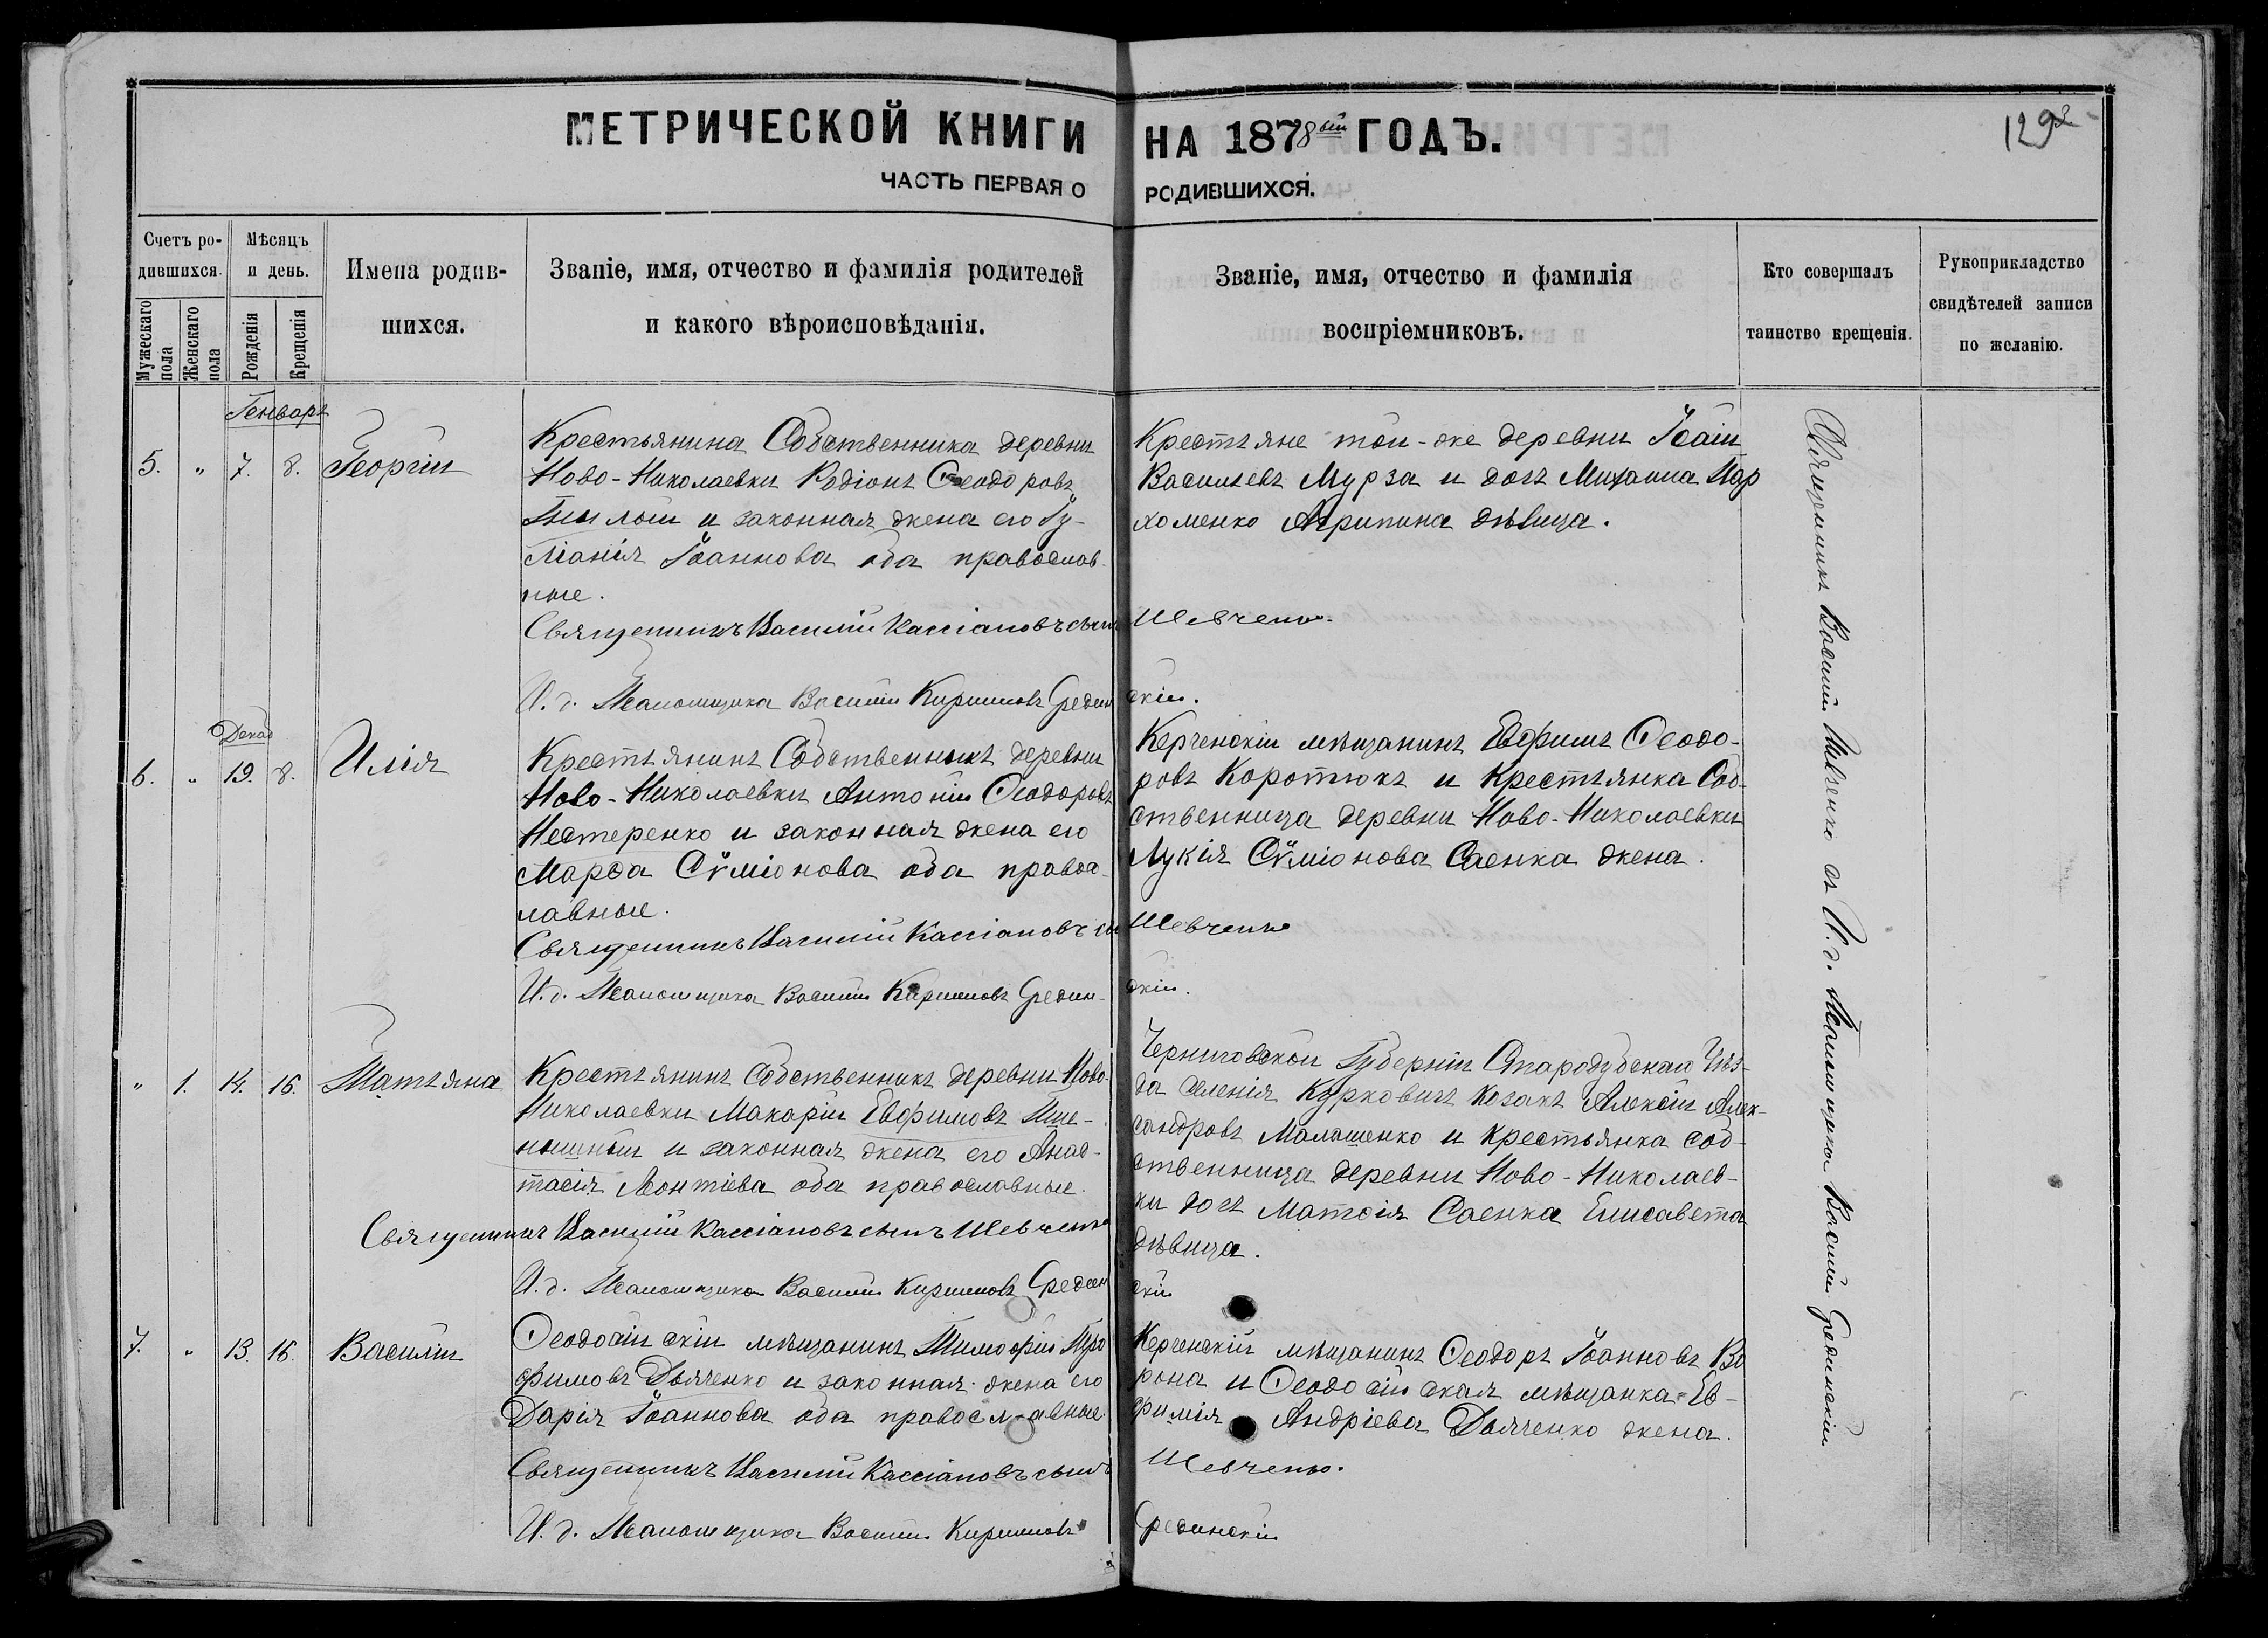 МЕТРИЧЕСКОЙ КНИГИ НА 1878ый ГОДЪ.
129
ЧАСТЬ ПЕРВАЯ О РОДИВШИХСЯ.
Счетъ ро-
дившихся.
Мужескаго пола
Женскаго пола
Мѣсяцъ
и день.
Рожденія
Крещенія
Имена родив-
шихся.
Званіе, имя, отчество и фамилія родителей
и какого вѣроисповѣданія.
Званіе, имя, отчество и фамилія
воспріемниковъ.
Кто совершалъ
таинство крещенія.
Рукоприкладство
свидѣтелей записи
по желанію.
Генваря
5. „ 7. 8. Георгій
Крестьянина Собственника деревни
Ново-Николаевки Родіонъ Ѳеодоровъ
Гнилой и законная жена его Іу-
ліанія Іоаннова оба православ-
ные.
Священникъ Василій Кассіановъ сынъ Шевченко.
И. д. Псаломщика Василій Кирилловъ Срединскій.
Крестьяне той-же деревни Исаій
Васильевъ Мурза и дочь Михаила Пар
хоменко Агрипина дѣвица.
Декаб
6. „ 19. 8. Илія
Крестьянинъ Собственникъ деревни
Ново-Николаевки Антоній Ѳеодоровъ
Нестеренко и законная жена его
Марѳа Сѵміонова оба правос-
лавные.
Священникъ Василій Кассіановъ сынъ Шевченко
И. д. Псаломщика Василій Кирилловъ Средин-скій.
Керченскій мѣщанинъ Евфимъ Ѳеодо-
ровъ Коротюкъ и Крестьянка Соб-
ственница деревни Ново-Николаевки
Лукія Сѵміонова Саенка жена.
„ 1. 14. 16. Татьяна
Крестьянинъ Собственникъ деревни Ново-
Николаевки Макарій Евфимовъ Пше-
нышный и законная жена его Анас-
тасія Леонтіева оба православные.
Священникъ Василій Кассіановъ сынъ Шевченко
И. д. Псаломщика Василій Кирилловъ Срединскій
Черниговской Губерніи Стародубскаго Уѣз-
да селенія Курковичъ козакъ Алексій Алек-
сандровъ Малашенко и крестьянка соб-
ственница деревни Ново-Николаев-
ки дочь Матѳія Саенка Елисавета
дѣвица.
7. „ 13. 16. Василій
Ѳеодосійскій мѣщанинъ Тимофій Тро
фимовъ Дьяченко и законная жена его
Дарія Іоаннова оба православные.
Священникъ Василій Кассіановъ сынъ Шевченко.
И. д. Псаломщика Василій Кирилловъ Срединскій
Керченскій мѣщанинъ Ѳеодоръ Іоанновъ Во
рона и Ѳеодосійская мѣщанка Ев-
фимія Андріева Дьяченко жена.
Священникъ Василій Шевченко съ И. д. Псаломщика Василій Срединскій